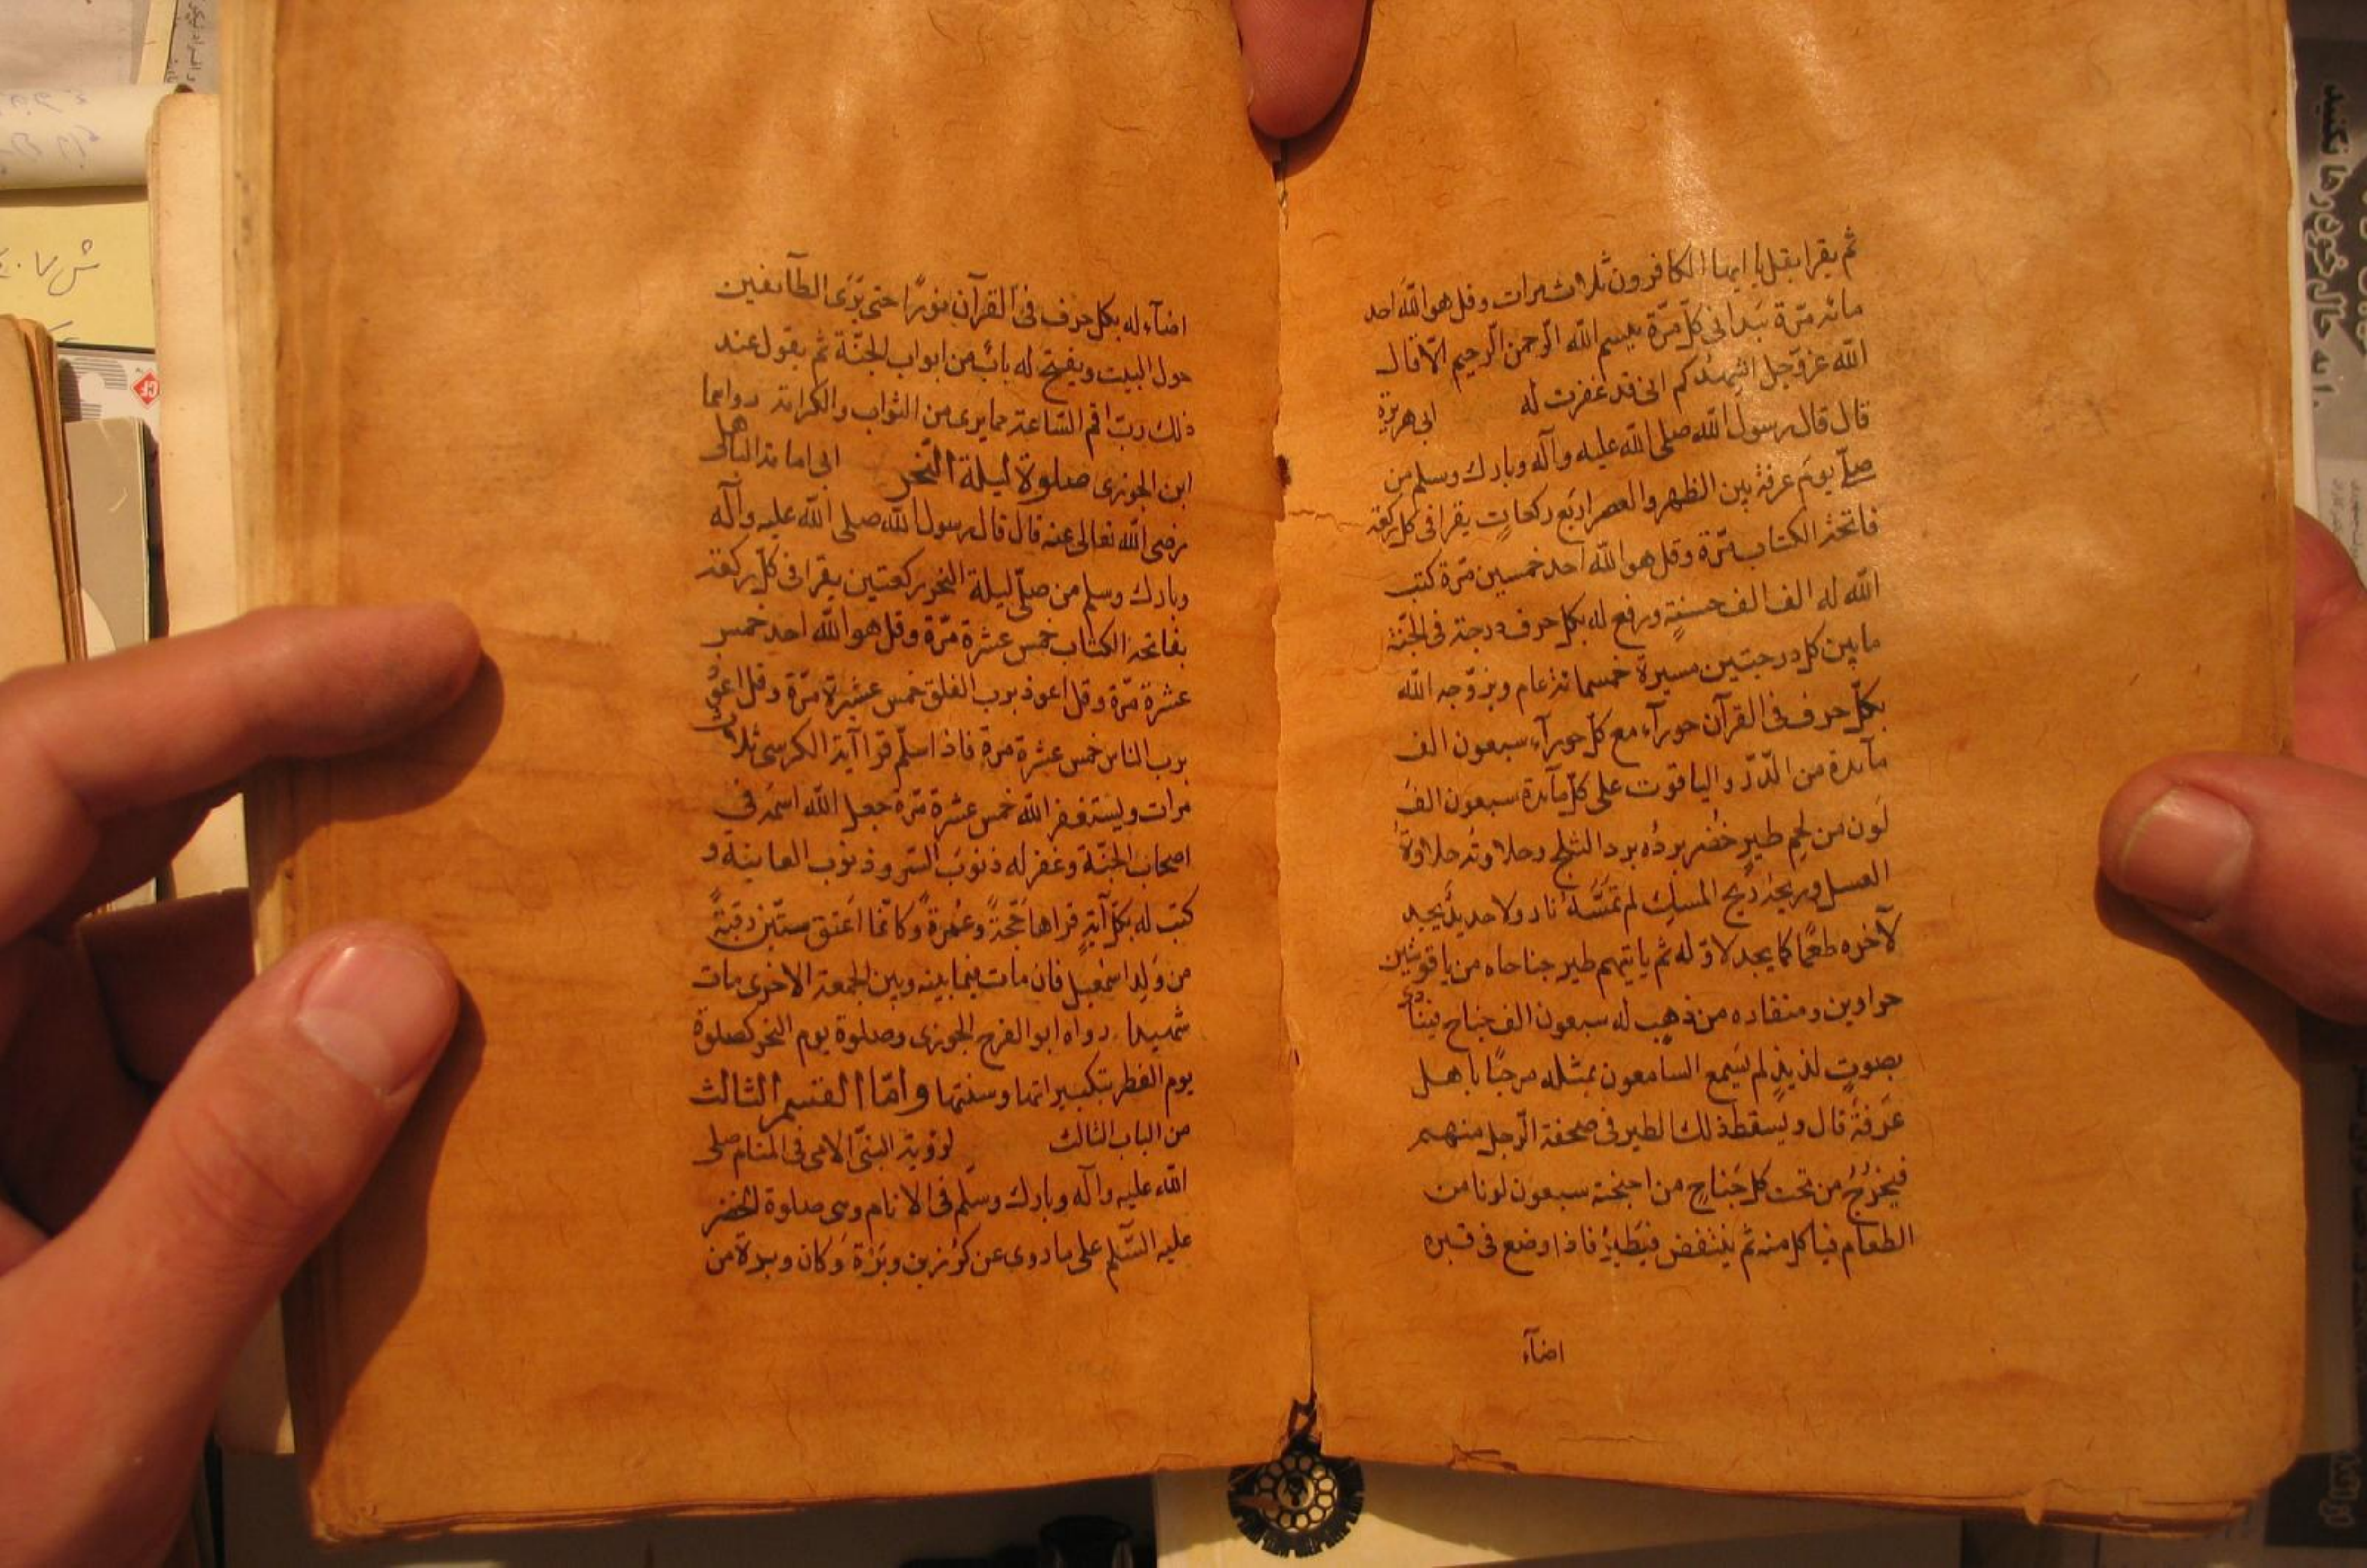 ثم يقرا بقل يا ايها الكافرون ثلاث مرات وقل هو الله احد
مائة مرّة يبدا فى كلّ مرّة ببسم الله الرّحمن الرّحيم الّا قال
الله عزّوجلّ اشهدكم انى قد غفرت له ابى هريرة
قال قال رسول الله صلى الله عليه وآله وبارك وسلم من
صلّى يوم عرفة بين الظهر والعصر اربع ركعات يقرا فى كل ركعة
فاتحة الكتاب مرّة وقل هو الله احد خمسين مرّة كتب
الله له الف الف حسنةٍ ورفع له بكل حرف درجة فى الجنّة
ما بين كل درجتين مسيرة خمسمائة عام ويزوّجه الله
بكلّ حرف فى القرآن حورآء مع كلّ حورآء سبعون الف
مآئدة من الدّرّ والياقوت على كلّ مآئدة سبعون الف
لَون من لحم طيرٍ خُضر بردُه برد الثلج وحلاوته حلاوةُ
العسل وريحهُ ريح المسك لم تمسَّه نار ولا حديدٌ يجد
لآخره طعمًا كما يجد لاوّله ثم ياتيهم طير جناحاه من ياقوتتين
حراوين ومنقاره من ذهبٍ له سبعون الف جناح فينادى
بصوتٍ لذيذٍ لم يسمع السامعون بمثله مرحبًا باهل
عَرفَة قال ويسقط ذلك الطير فى صحفة الرّجل منهم
فيخرُجُ من تحت كل جَناحٍ من اجنحته سبعون لونا من
الطعام فياكل منه ثم ينتفض فيَطيرُ فاذا وضع فى قبره
اضآء
اضآء له بكل حرف فى القرآن نورًا حتى يَرَى الطآئفين
حول البيت ويفتح له بابٌ من ابواب الجنّة ثم يقول عند
ذلك ربّ اقم السّاعة مما يرى من الثواب والكرامة رواهما
ابن الجوزى صلوة ليلة النّحر ابى امامة الباهلى
رضى الله تعالى عنه قال قال رسول الله صلى الله عليه وآله
وبارك وسلم من صلّى ليلة النحر ركعتين يقرا فى كلّ ركعة
بفاتحة الكتاب خمس عشرة مرّة وقل هو الله احد خمس
عشرة مرّة وقل اعوذ برب الفلق خمس عشرة مرّة وقل اعوذ
برب الناس خمس عشرة مرة فاذا سلّم قرا آية الكرسى ثلاث
مرات ويستغفر الله خمس عشرة مرّة جعل الله اسمَه فى
اصحاب الجنّة وغفر له ذنوبَ السّر وذنوب العلانية و
كتب له بكلّ آيةٍ قراها حَجّةً وعُمرةً وكانّما اَعتق ستّين رقبةً
من وَلد اسمعيل فان مات فيما بينه وبين الجمعة الاخرى مات
شهيدا رواه ابو الفرج الجوزى وصلوة يوم النحر كصلوة
يوم الفطر بتكبيراتها وسنتها وامّا القسم الثالث
من الباب الثالث لرؤية النبىّ الامى فى المنام صلى
الله عليه وآله وبارك وسلم فى الانام وهى صلوة الخضر
عليه السّلم على ما روى عن كرُز بن وبَرَة وكان وبرة من